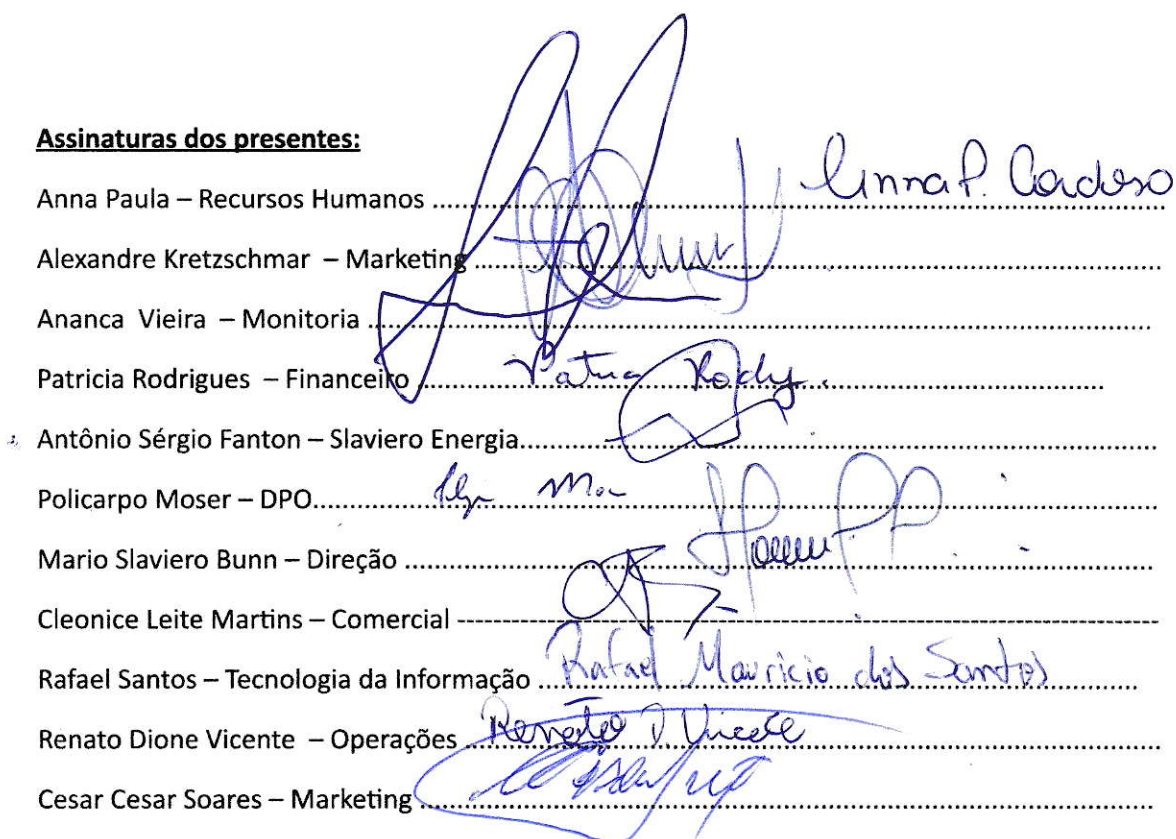 Assinaturas dos presentes:
Anna Paula – Recursos Humanos ........ Anna P. Cardoso
Alexandre Kretzschmar – Marketing ........
Ananca Vieira – Monitoria ........
Patricia Rodrigues – Financeiro ........
Antônio Sérgio Fanton – Slaviero Energia........
Policarpo Moser – DPO........
Mario Slaviero Bunn – Direção ........
Cleonice Leite Martins – Comercial --------
Rafael Santos – Tecnologia da Informação ........ Rafael Mauricio dos Santos
Renato Dione Vicente – Operações ........ Renato D. Vicente
Cesar Cesar Soares – Marketing ........